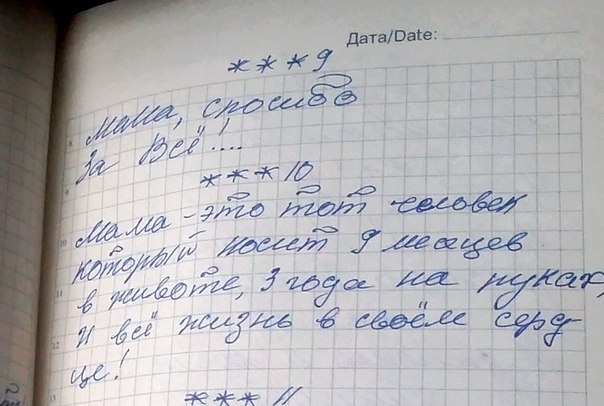 Дата/Date:
***9
Мама, спосибо
За Всё!...
***10
Мама - это тот человек
который носит 9 месяцев
в животе, 3 года на руках,
и всё жизнь в своём серд-
це!
***11